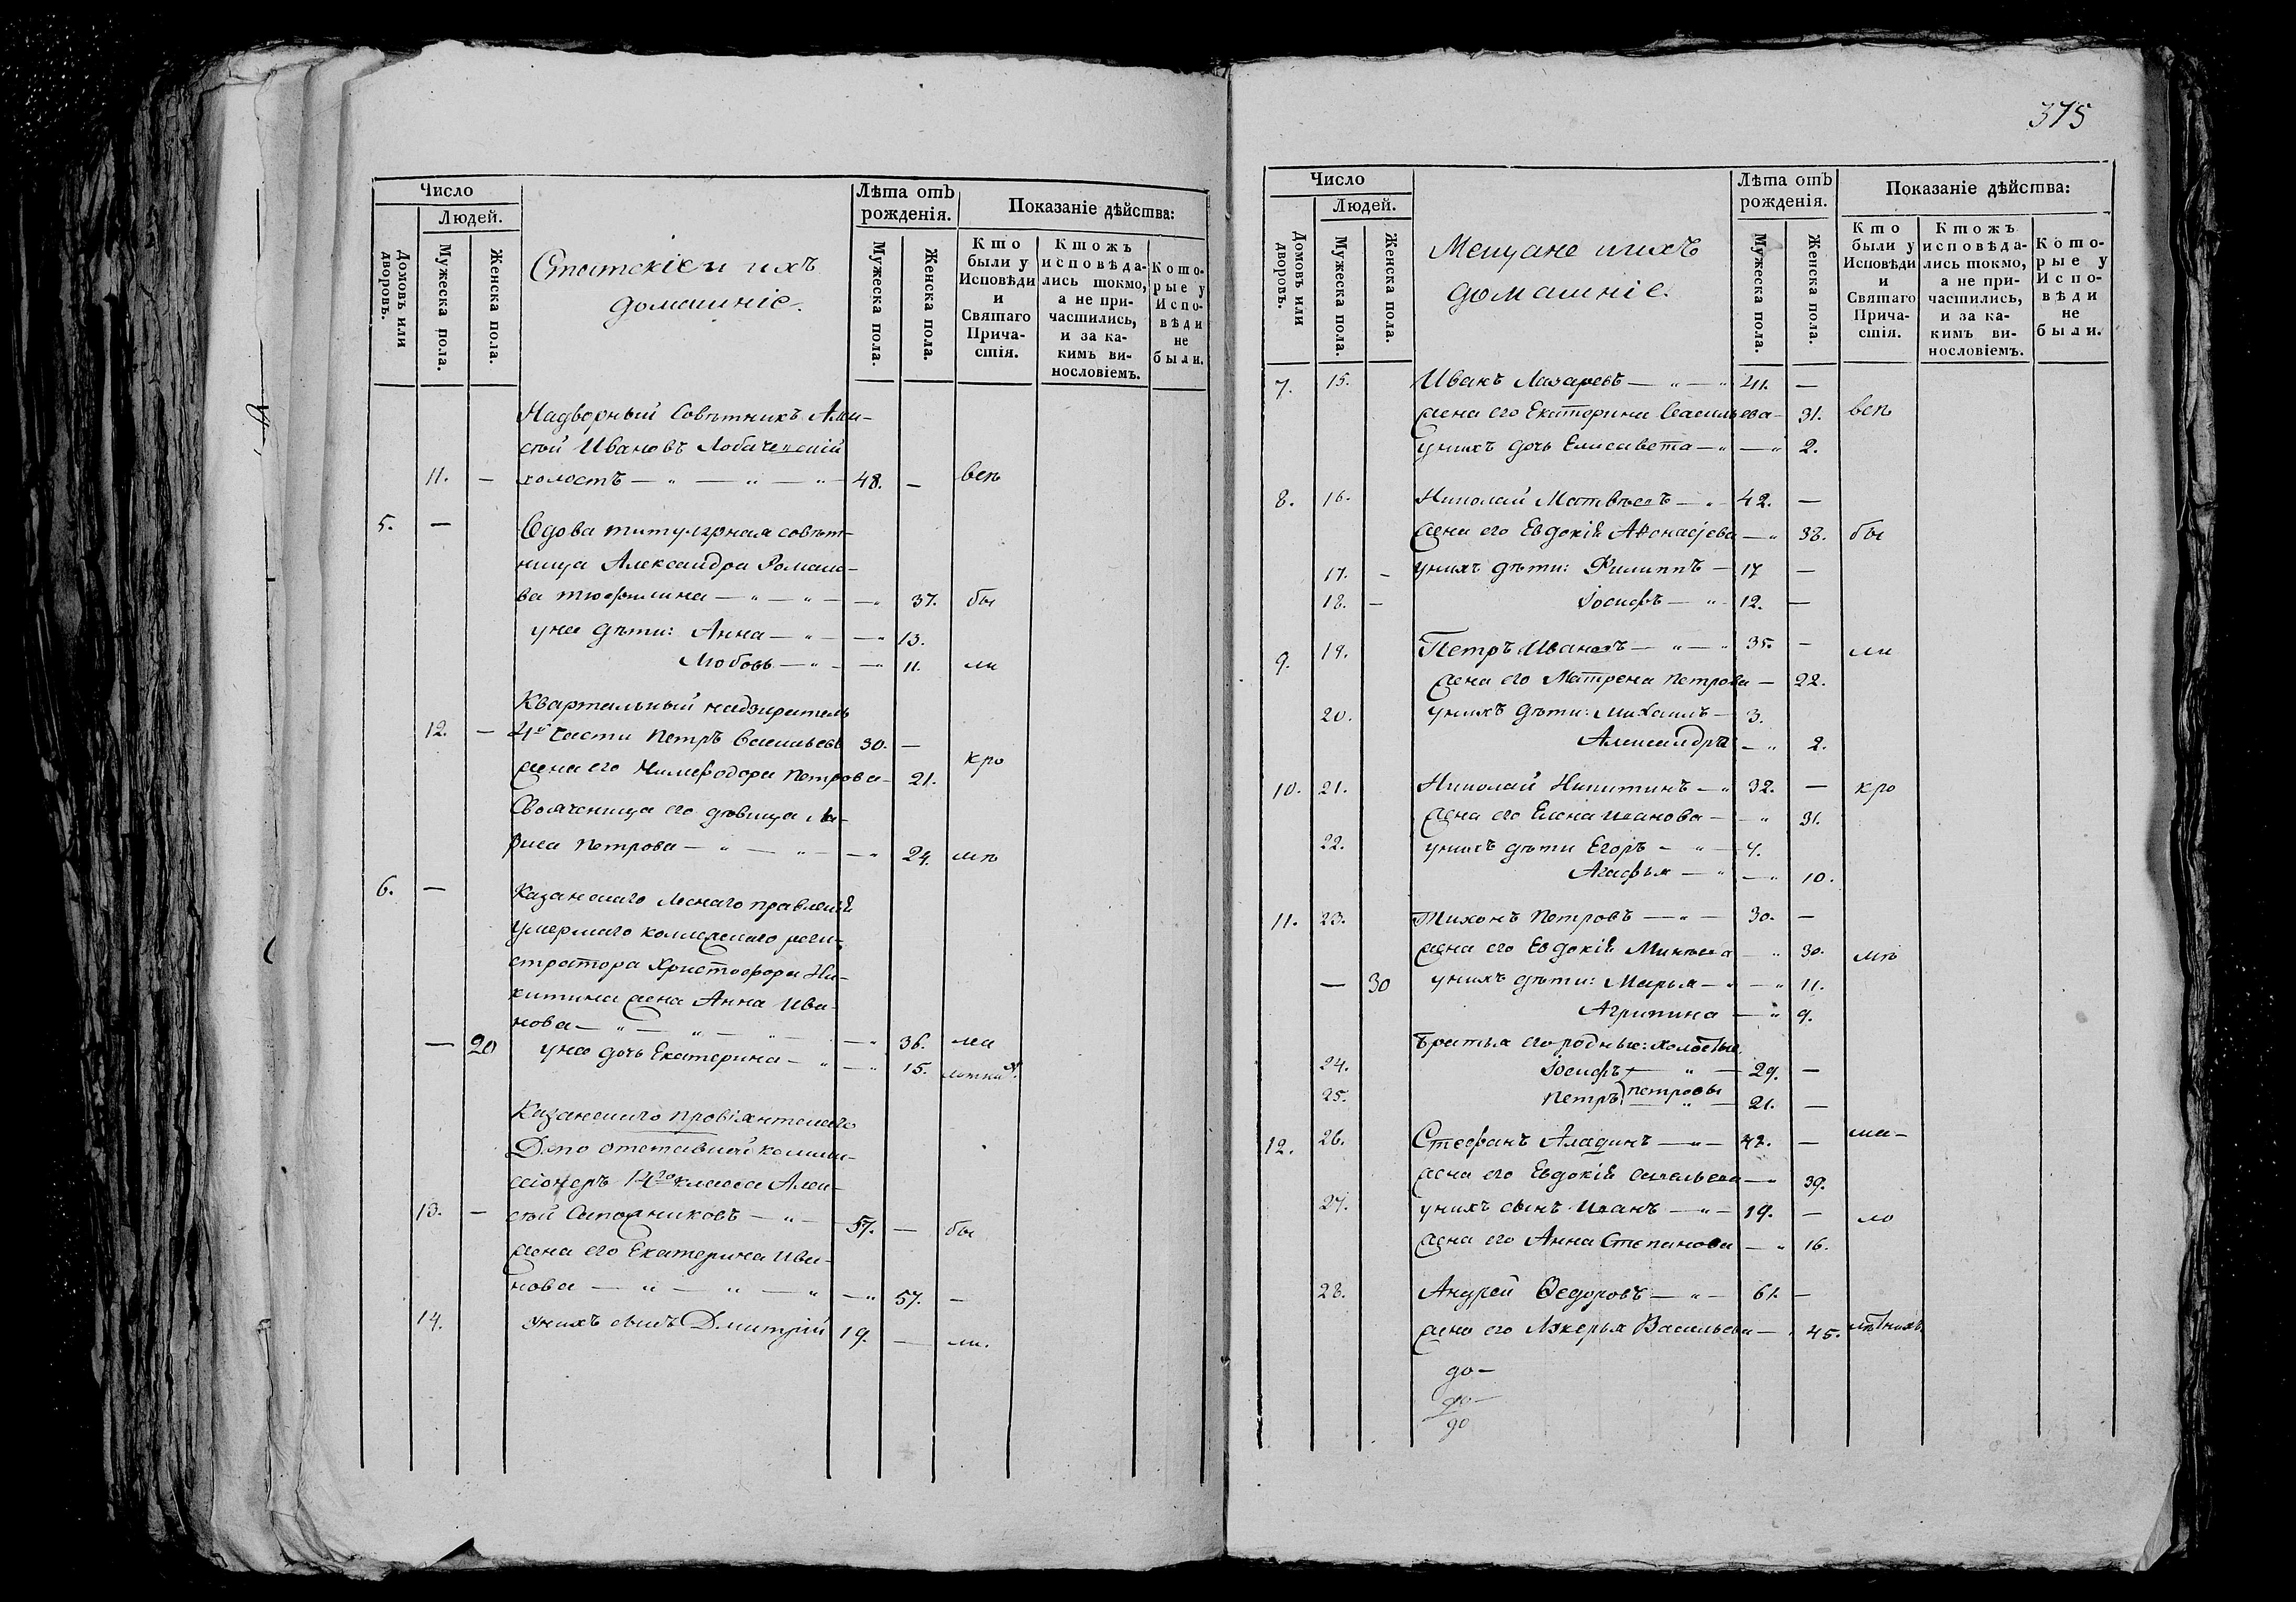 375
Число
Людей.
Домовъ или дворовъ.
Мужеска пола.
Женска пола.
Статскіе и ихъ
домашніе.
Лѣта отъ рожденія.
Мужеска пола.
Женска пола.
Показаніе дѣйства:
Кто были у Исповѣди и Святаго Причастія.
Ктожъ исповѣдались токмо, а не причастились, и за какимъ винословіемъ.
Которые у Исповѣди не были.
Надворный Совѣтникъ Але-
ксѣй Ивановъ Лобачевскій
11. — холостъ — „ — „ — „ 48. —
5. — Вдова титулярная совѣт-
ница Александра Романо-
ва — „ — „ — — „ 37. бы
у нее дѣти: Анна — „ — — „ 13.
Любовь — „ — — „ 11. ли
Квартальный надзиратель
12. — 4й части Петръ Васильевъ 30. —
жена его Минодора Петрова — 21. кро
Свояченица его дѣвица Ла-
риса Петрова — „ — „ — — „ 24. мъ
6. — Казанскаго Лѣснаго правленія
умершаго коллежскаго реги-
стратора Христофора Ни-
китина жена Анна Ива-
нова — „ — „ — „ — „ 36.
— 20 у нее дочь Екатерина — „ — „ 15.
Казанскаго провіянтскаго
Депо отставной комми-
сіонеръ 14го класса Алек-
13. — сѣй Сапожниковъ — „ — 57. — бы
жена его Екатерина Ива-
нова — „ — „ — „ — „ 57. —
14. у нихъ сынъ Дмитрій 19. — ли.
Число
Людей.
Домовъ или дворовъ.
Мужеска пола.
Женска пола.
Мещане и ихъ
домашніе.
Лѣта отъ рожденія.
Мужеска пола.
Женска пола.
Показаніе дѣйства:
Кто были у Исповѣди и Святаго Причастія.
Ктожъ исповѣдались токмо, а не причастились, и за какимъ винословіемъ.
Которые у Исповѣди не были.
7. 15. Иванъ Лазаревъ — „ — „ 41. —
жена его Екатерина Васильева — 31. всѣ
у нихъ дочь Елисавета — „ — „ 2.
8. 16. Николай Матвѣевъ — „ 42. —
жена его Евдокія Афонасьева — „ 38. бы
17. — у нихъ дѣти: Филиппъ — 17 —
18. — Іосифъ — „ 12. —
9. 19. Петръ Ивановъ — „ — „ 35. — ли
жена его Матрена Петрова — 22.
20. у нихъ дѣти: Михаилъ — 3.
Александра — „ 2.
10. 21. Николай Никитинъ — „ 32. — кро
жена его Елена Иванова — „ 31.
22. у нихъ дѣти Егоръ — „ — 4.
Агафья — „ — „ 10.
11. 23. Тихонъ Петровъ — „ — 30. —
жена его Евдокія Микѣева „ 30. мъ
— 30 у нихъ дѣти: Марья — „ — „ 11.
Агрипина — „ 9.
братья его родные: холостые
24. Іосифъ — „ — 29. —
25. Петръ Петровы — „ — 21. —
12. 26. Стефанъ Аладинъ — „ — 42. — ма-
жена его Евдокія Савельева — „ 39.
27. у нихъ сынъ Иванъ — „ — 19. — ло
жена его Анна Степанова — „ 16.
28. Андрей Ѳедоровъ — „ — 61. —
жена его Лукерья Васильева — 45. лѣтнихъ
до —
до —
до